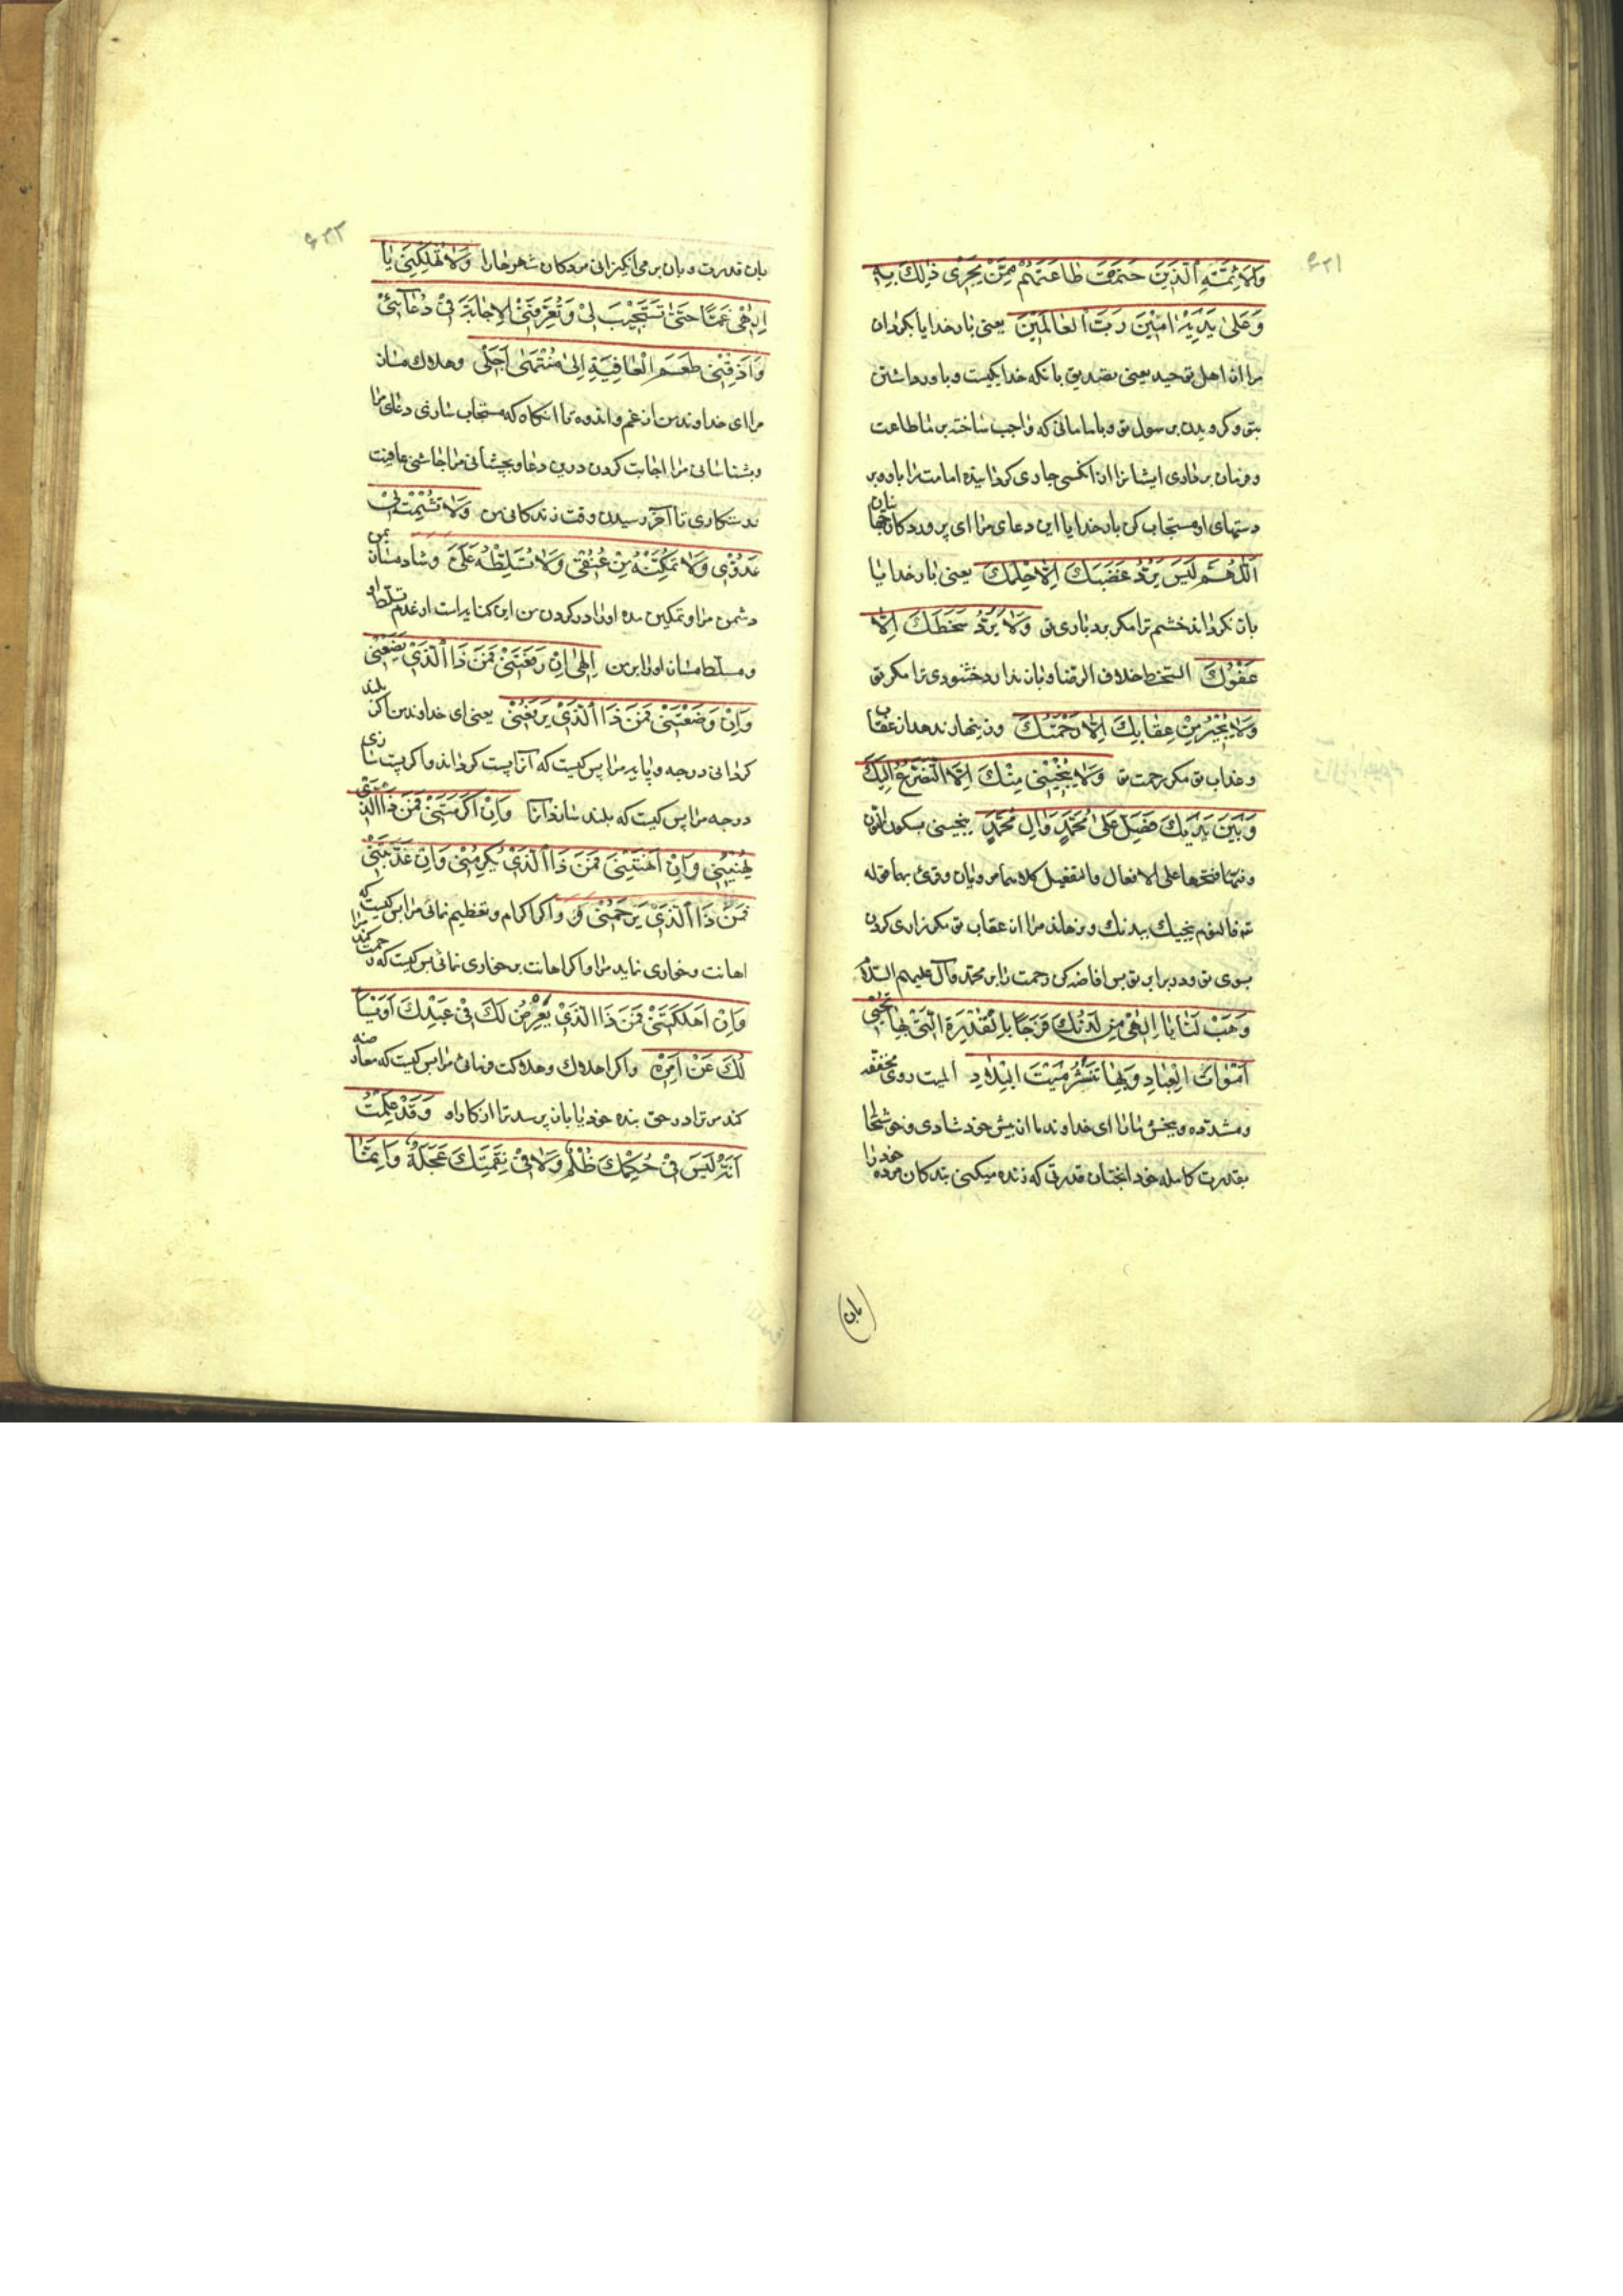 ۶۲۱
وَالْاَئِمَّةِ الَّذِينَ حَتَمْتَ طَاعَتَهُمْ مِمَّنْ يَجْرِى ذٰلِكَ بِهِ
وَعَلىٰ يَدَيْهِ اٰمِيْنَ رَبَّ الْعالَمِيْنَ يعنى بار خدايا بكردان
مرا از اهل توحيد يعنى بتصديق بانكه خدا يكيست و باور داشتن
بتو و كرويدن برسول تو و بامامانى كه واجب ساخته بر ما طاعت
و فرمان بردارى ايشانرا از انكسى جارى كردانيده امامت را باو و بر
دستهاى او مستجاب كن بار خدايا اين دعاى مرا اى پروردكار جهانيان
اَللّٰهُمَّ لَيْسَ يَرُدُّ غَضَبَكَ اِلّا حِلْمُكَ يعنى بار خدايا
باز نكرداند خشم ترا مكر بردبارى تو وَلا يَرُدُّ سَخَطَكَ اِلّا
عَفْوُكَ السخط خلاف الرضا و باز ندارد خشنودى ترا مكر تو
وَلا يُجِيْرُ مِنْ عِقابِكَ اِلّا رَحْمَتُكَ و زينهار ندهد از عقاب
و عذاب تو مكر رحمت تو وَلا يُنْجِيْنى مِنْكَ اِلَّا التَّضَرُّعُ اِلَيْكَ
وَبَيْنَ يَدَيْكَ فَصَلِّ عَلىٰ مُحَمَّدٍ وَاٰلِ مُحَمَّدٍ ينجينى بسكون النون
و فتحها على الافعال والتفعيل كلاهما مرويان و قرئ بهما قوله
تع فاليوم ننجيك ببدنك و نرهاند مرا از عقاب تو مكر زارى كردن
بسوى تو و در برابر تو پس افاضه كن رحمت را بر محمد و آل عليهم السلام
وَهَبْ لَنا يا اِلٰهى مِنْ لَدُنْكَ فَرَجًا بِالْقُدْرَةِ الَّتى بِها تُحْيى
اَمْواتَ الْعِبادِ وَبِها تَنْشُرُ مَيْتَ الْبِلادِ الميت روى مخففه
و مشدده و ببخش ما را اى خداوند ما از پيش خود شادى و خوشحال
بقدرت كامله خود انچنان قدرتى كه زنده ميكنى بندكان مرده خود را
بان
۶۲۲
بان قدرت و بان برمى انكيزانى مردكان شهرها را وَلا تُهْلِكْنى يا
اِلٰهى غَمًّا حَتّىٰ تَسْتَجيْبَ لى وَتُعَرِّفَنى الْاِجابَةَ فى دُعائى
وَاَذِقْنى طَعْمَ الْعافِيَةِ اِلىٰ مُنْتَهىٰ اَجَلى و هلاك مساز
مرا اى خداوند من از غم و اندوه تا انكاه كه مستجاب سازى دعاى مرا
و بشناسانى مرا اجابت كردن درين دعا و بچشانى مرا چاشنى عافيت
و رستكارى تا آخر رسيدن وقت زندكانى من وَلا تُشْمِتْ بى
عَدُوّى وَلا تُمَكِّنْهُ مِنْ عُنُقى وَلا تُسَلِّطْهُ عَلَىَّ و شاد مساز بمن
دشمن مرا و تمكين مده او را در كردن من اين كنايه است از عدم تسلط او
و مسلط مساز او را بر من اِلٰهى اِنْ رَفَعْتَنى فَمَنْ ذَا الَّذى يَضَعُنى
وَاِنْ وَضَعْتَنى فَمَنْ ذَا الَّذى يَرْفَعُنى يعنى اى خداوند من اكر بلند
كردانى درجه و پايه مرا پس كيست كه آنرا پست كرداند و اكر پست سازى
درجه مرا پس كيست كه بلند سازد آنرا وَاِنْ اَكْرَمْتَنى فَمَنْ ذَا الَّذى
يُهينُنى وَاِنْ اَهَنْتَنى فَمَنْ ذَا الَّذى يُكْرِمُنى وَاِنْ عَذَّبْتَنى
فَمَنْ ذَا الَّذى يَرْحَمُنى و واكر اكرام و تعظيم نمائى مرا پس كيست كه
اهانت و خوارى نمايد مرا و اكر اهانت بر خوارى نمائى پس كيست كه رحمت كند مرا
وَاِنْ اَهْلَكْتَنى فَمَنْ ذَا الَّذى يَعْرِضُ لَكَ فى عَبْدِكَ اَوْ يَسْأَ
لُكَ عَنْ اَمْرِهِ و اكر اهلاك و هلاكت فرمائى مرا پس كيست كه معارضه
كند مر ترا در حق بنده خود يا باز پرسد ترا از كار او وَقَدْ عَلِمْتُ
اَنَّهُ لَيْسَ فى حُكْمِكَ ظُلْمٌ وَلا فى نِقْمَتِكَ عَجَلَةٌ وَاِنَّما